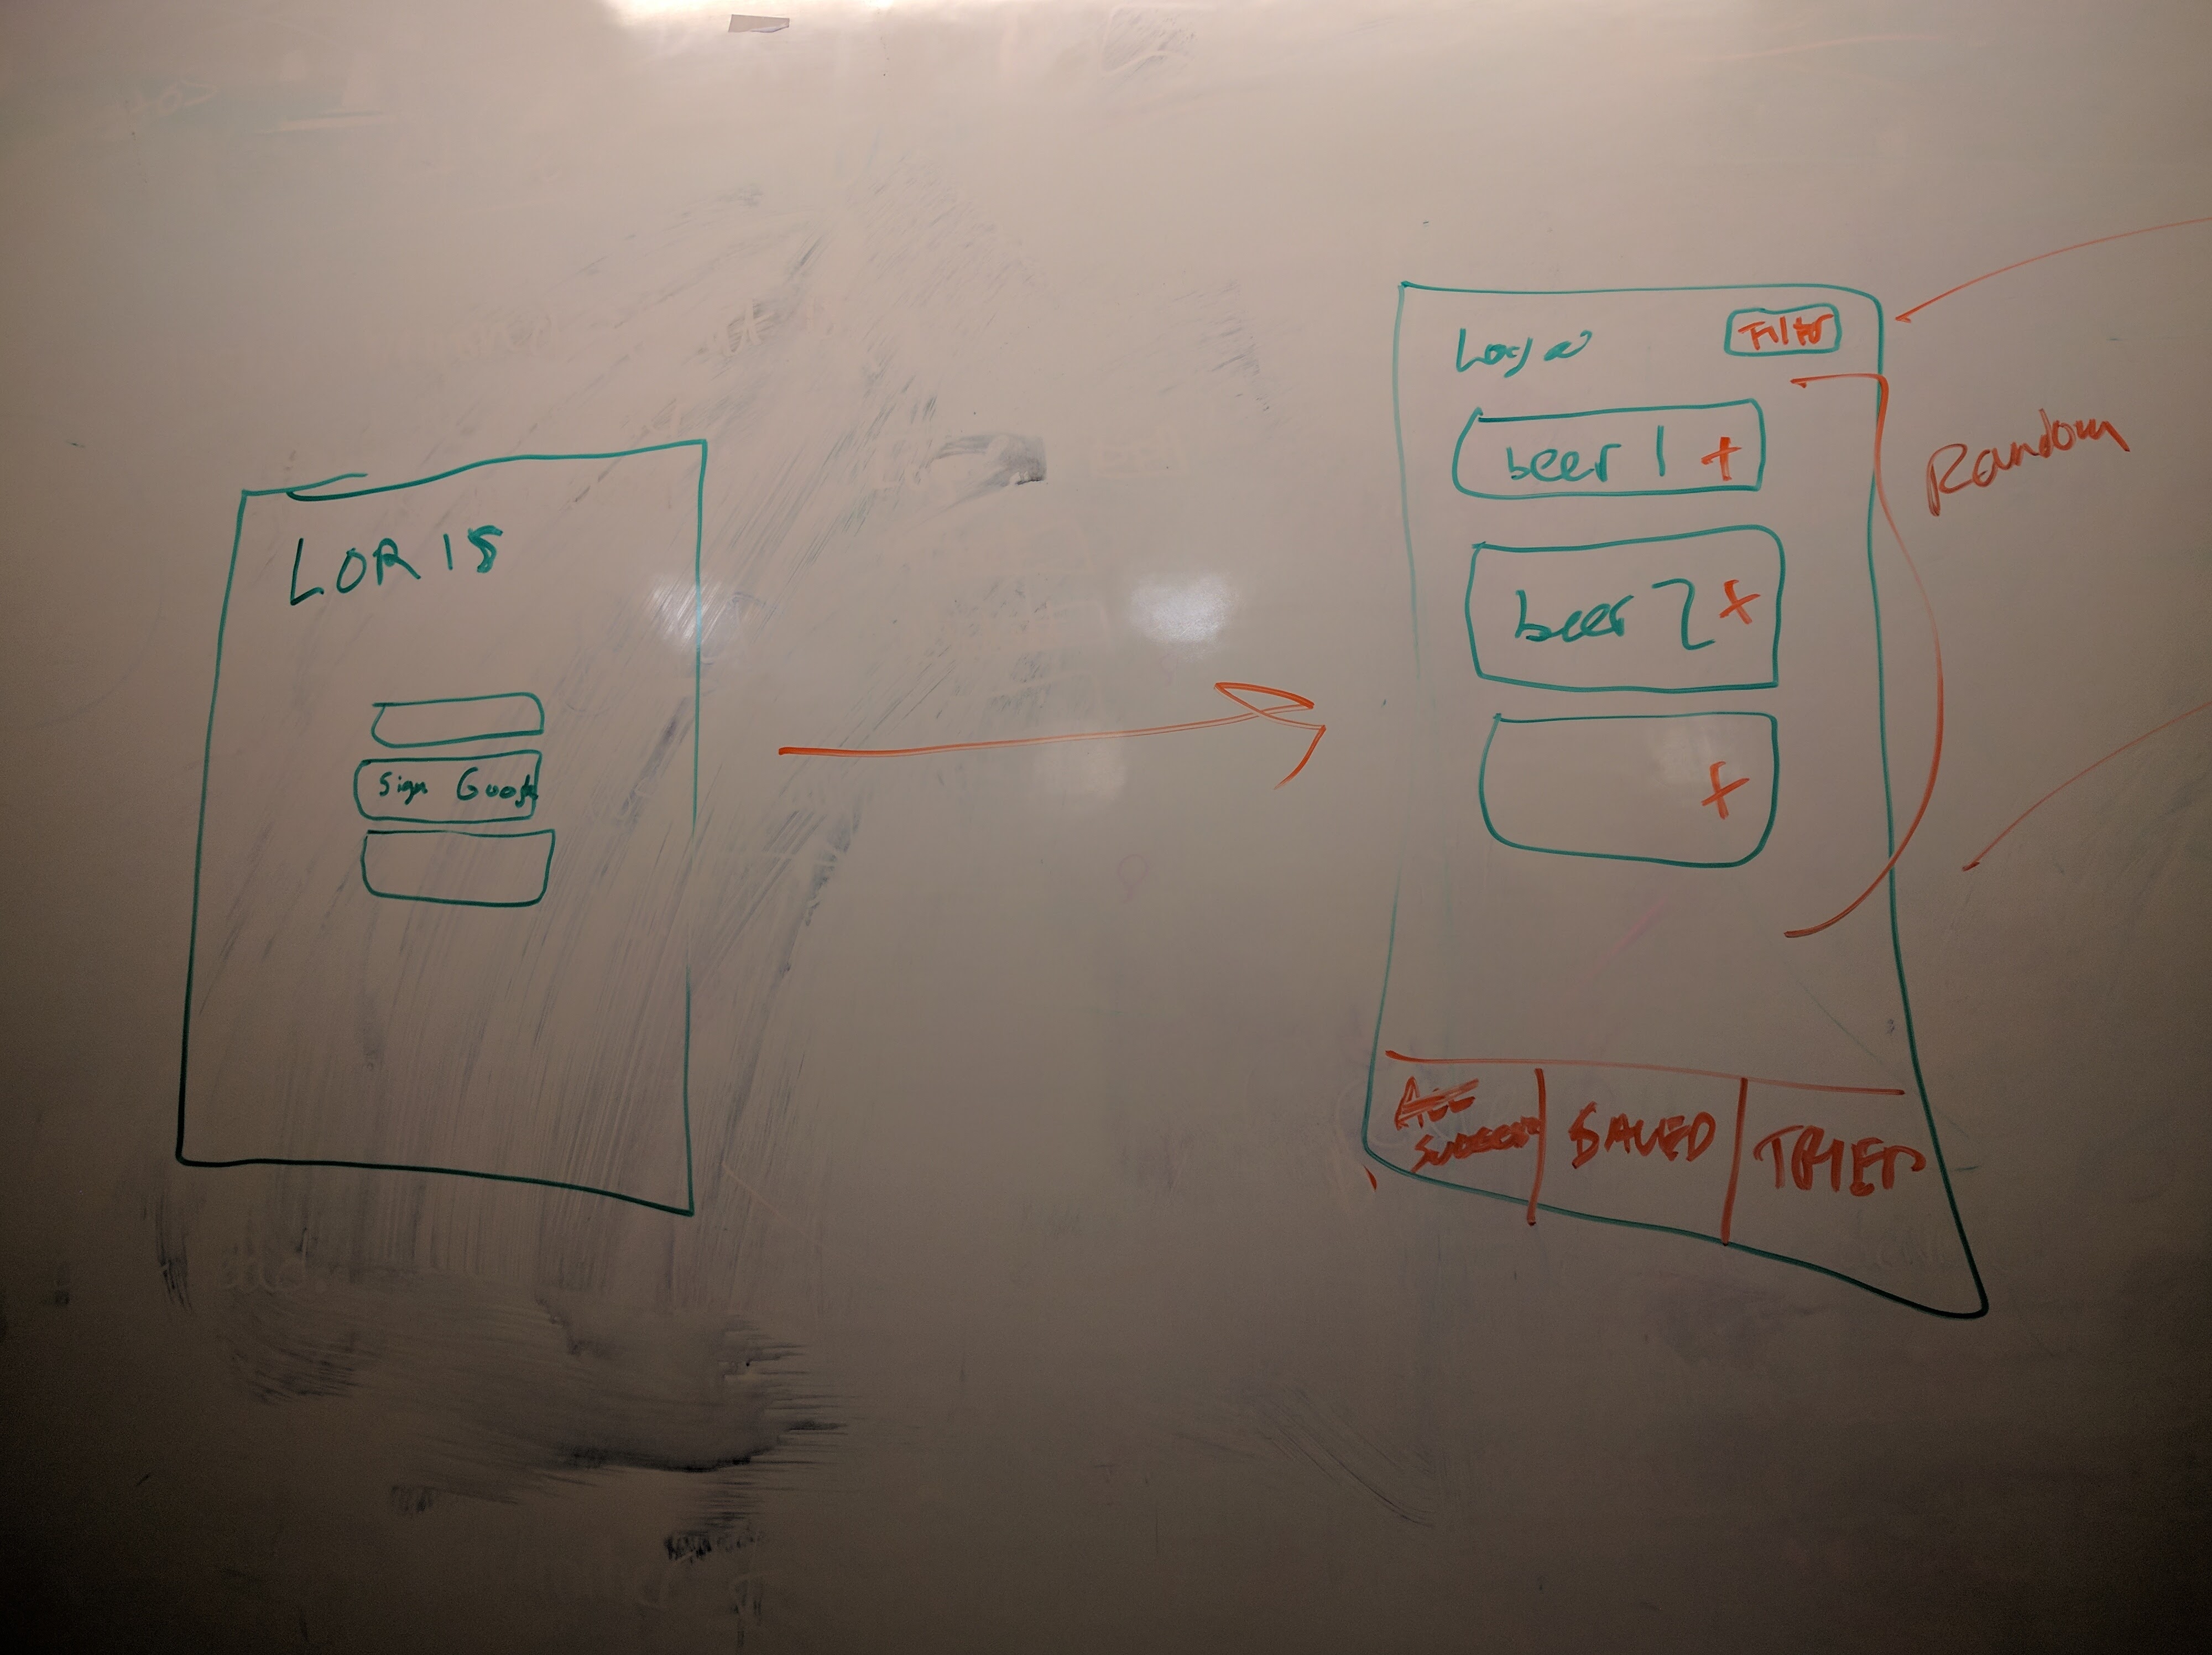 LORIS
Sign Google
Logo
Filter
beer 1 +
beer 2 +
+
Random
SAVED
TRIED